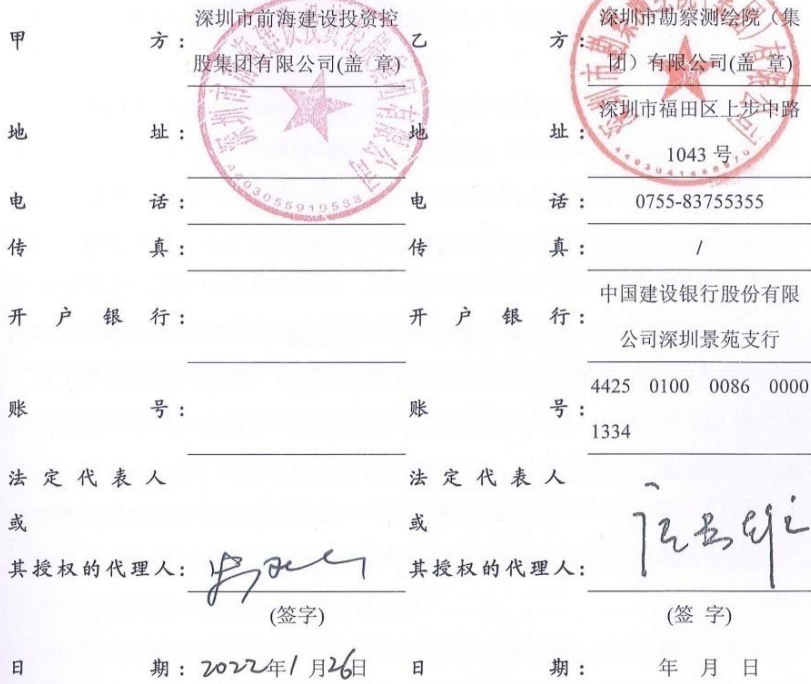 甲方：深圳市前海建设投资控股集团有限公司(盖 章)
地址：
电话：
传真：
开户银行：
账号：
法定代表人
或
其授权的代理人：
(签字)
日期：2022年1月26日
深圳市前海建设投资控股集团有限公司
4403055919538
乙方：深圳市勘察测绘院（集团）有限公司(盖 章)
地址：深圳市福田区上步中路
1043 号
电话：0755-83755355
传真：/
开户银行：中国建设银行股份有限
公司深圳景苑支行
账号：4425 0100 0086 0000
1334
法定代表人
或
其授权的代理人：
(签 字)
日期：年 月 日